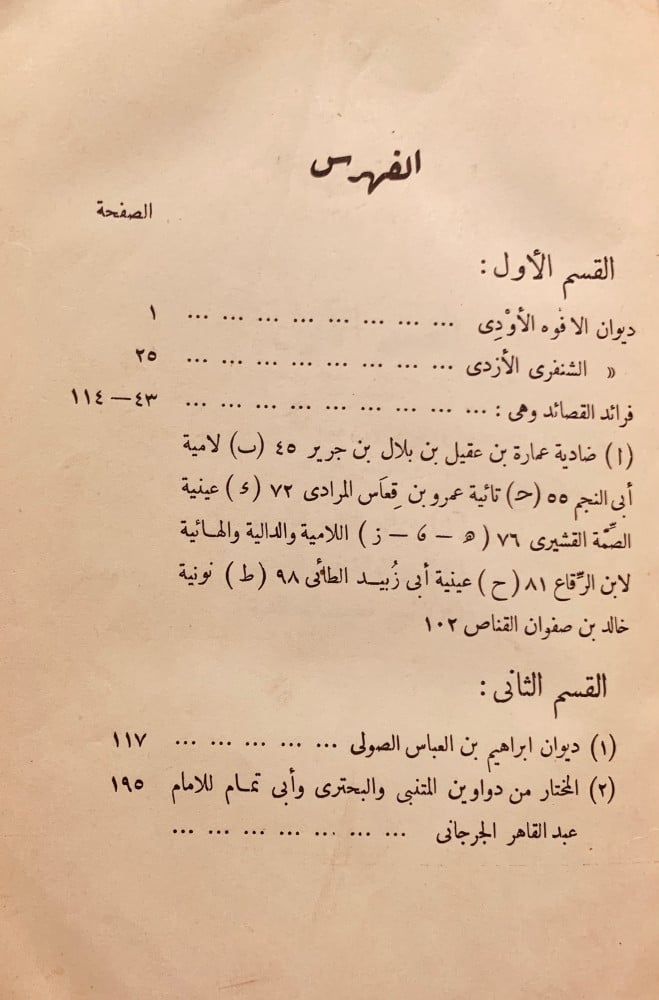 الفهرس
الصفحة
القسم الأول :
ديوان الافوه الأوْدِى ... ... ... ... ... ... ... ... ١
« الشنفرى الأزدى ... ... ... ... ... ... ... ... ٢٥
فرائد القصائد وهى : ... ... ... ... ... ... ... ... ... ٤٣ — ١١٤
( ا ) ضادية عمارة بن عقيل بن بلال بن جرير ٤٥ (ب) لامية
أبى النجم ٥٥ (حـ) تائية عمرو بن قِعاَس المرادى ٧٢ (ء) عينية
الصِّمَّة القشيرى ٧٦ ( هـ – و – ز ) اللامية والدالية والهائية
لابن الرِّقاع ٨١ ( ح ) عينية أبى زُبيد الطائى ٩٨ ( ط ) نونية
خالد بن صفوان القناص ١٠٢
القسم الثانى :
(١) ديوان ابراهيم بن العباس الصولى ... ... ... ... ... ١١٧
(٢) المختار من دواوين المتنبى والبحترى وأبى تمام للامام ١٩٥
عبد القاهر الجرجانى ... ... ... ... ... ... ...